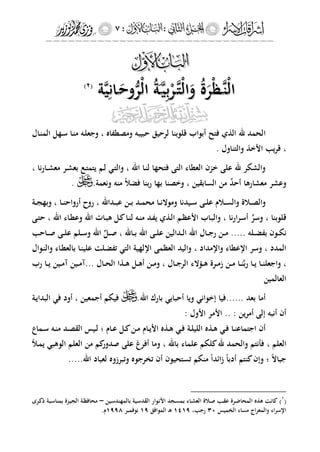 إشراقات الإسراء الجزء الثاني : الباب الأول : ٧ فوزي محمد أبوزيد
الباب الأول
النَّظْرَةُ وَالتَّرْبِيَّةُ الْرُّوحَانِيَّة (٢)
الحمد لله الذي فتح أبواب قلوبنا لرحيق حبيبه ومصطفاه ، وجعله منا سهل المنال
، قريب الأخذ والتناول .
والشكر لله على خزن العطاء التى فتحها لنا الله ، والتي لم يتمتع بعشر معشارنا ،
وعشر معشارها أحدٌ من السابقين ، وخصنا بها ربنا فضلاً منه ونعمة.
والصلاة والسلام على سيدنا ومولانا محمد بن عبدالله ، روح أرواحنا ، وبهجة
قلوبنا ، وسرُّ أسرارنا ، والباب الأعظم الذي يفد منه لنا كل هبات الله وعطاء الله ، حتى
نكون بفضله ..... من رجال الله الدالين على الله بالله ، صلِّ الله وسلم على صاحب
المدد ، وسر الإعطاء والإمداد ، واليد العظمى الإلهية التي تفضلت علينا بالعطاء والنوال
، واجعلنا يا ربَّنا من زمرة هؤلاء الرجال ، ومن أهل هذا الحال ...آمين آمين يا رب
العالمين
أما بعد ......فيا إخواني ويا أحبابي بارك الله فيكم أجمعين ، أود في البداية
أن أنبه إلى أمرين : .. الأمر الأول :
أن اجتماعنا في هذه الليلة في هذه الأيام من كل عام ؛ ليس القصد منه سماع
العلم ، فأنتم والحمد لله كلكم علماء بالله ، وما أفرغ على صدوركم من العلم الوهبي يملأ
جبالاً ؛ وإن كنتم أدباً زائداً منكم تستحيون أن تخرجوه وتبرزوه لعباد الله.....
(٢) كانت هذه المحاضرة عقب صلاة العشاء بمسجد الأنوار القدسية بالمهندسين – محافظة الجيزة بمناسبة ذكرى
الإسراء والمعراج مساء الخميس ٣٠ رجب، ١٤١٩ هـ الموافق ١٩ نوفمبر ١٩٩٨م.